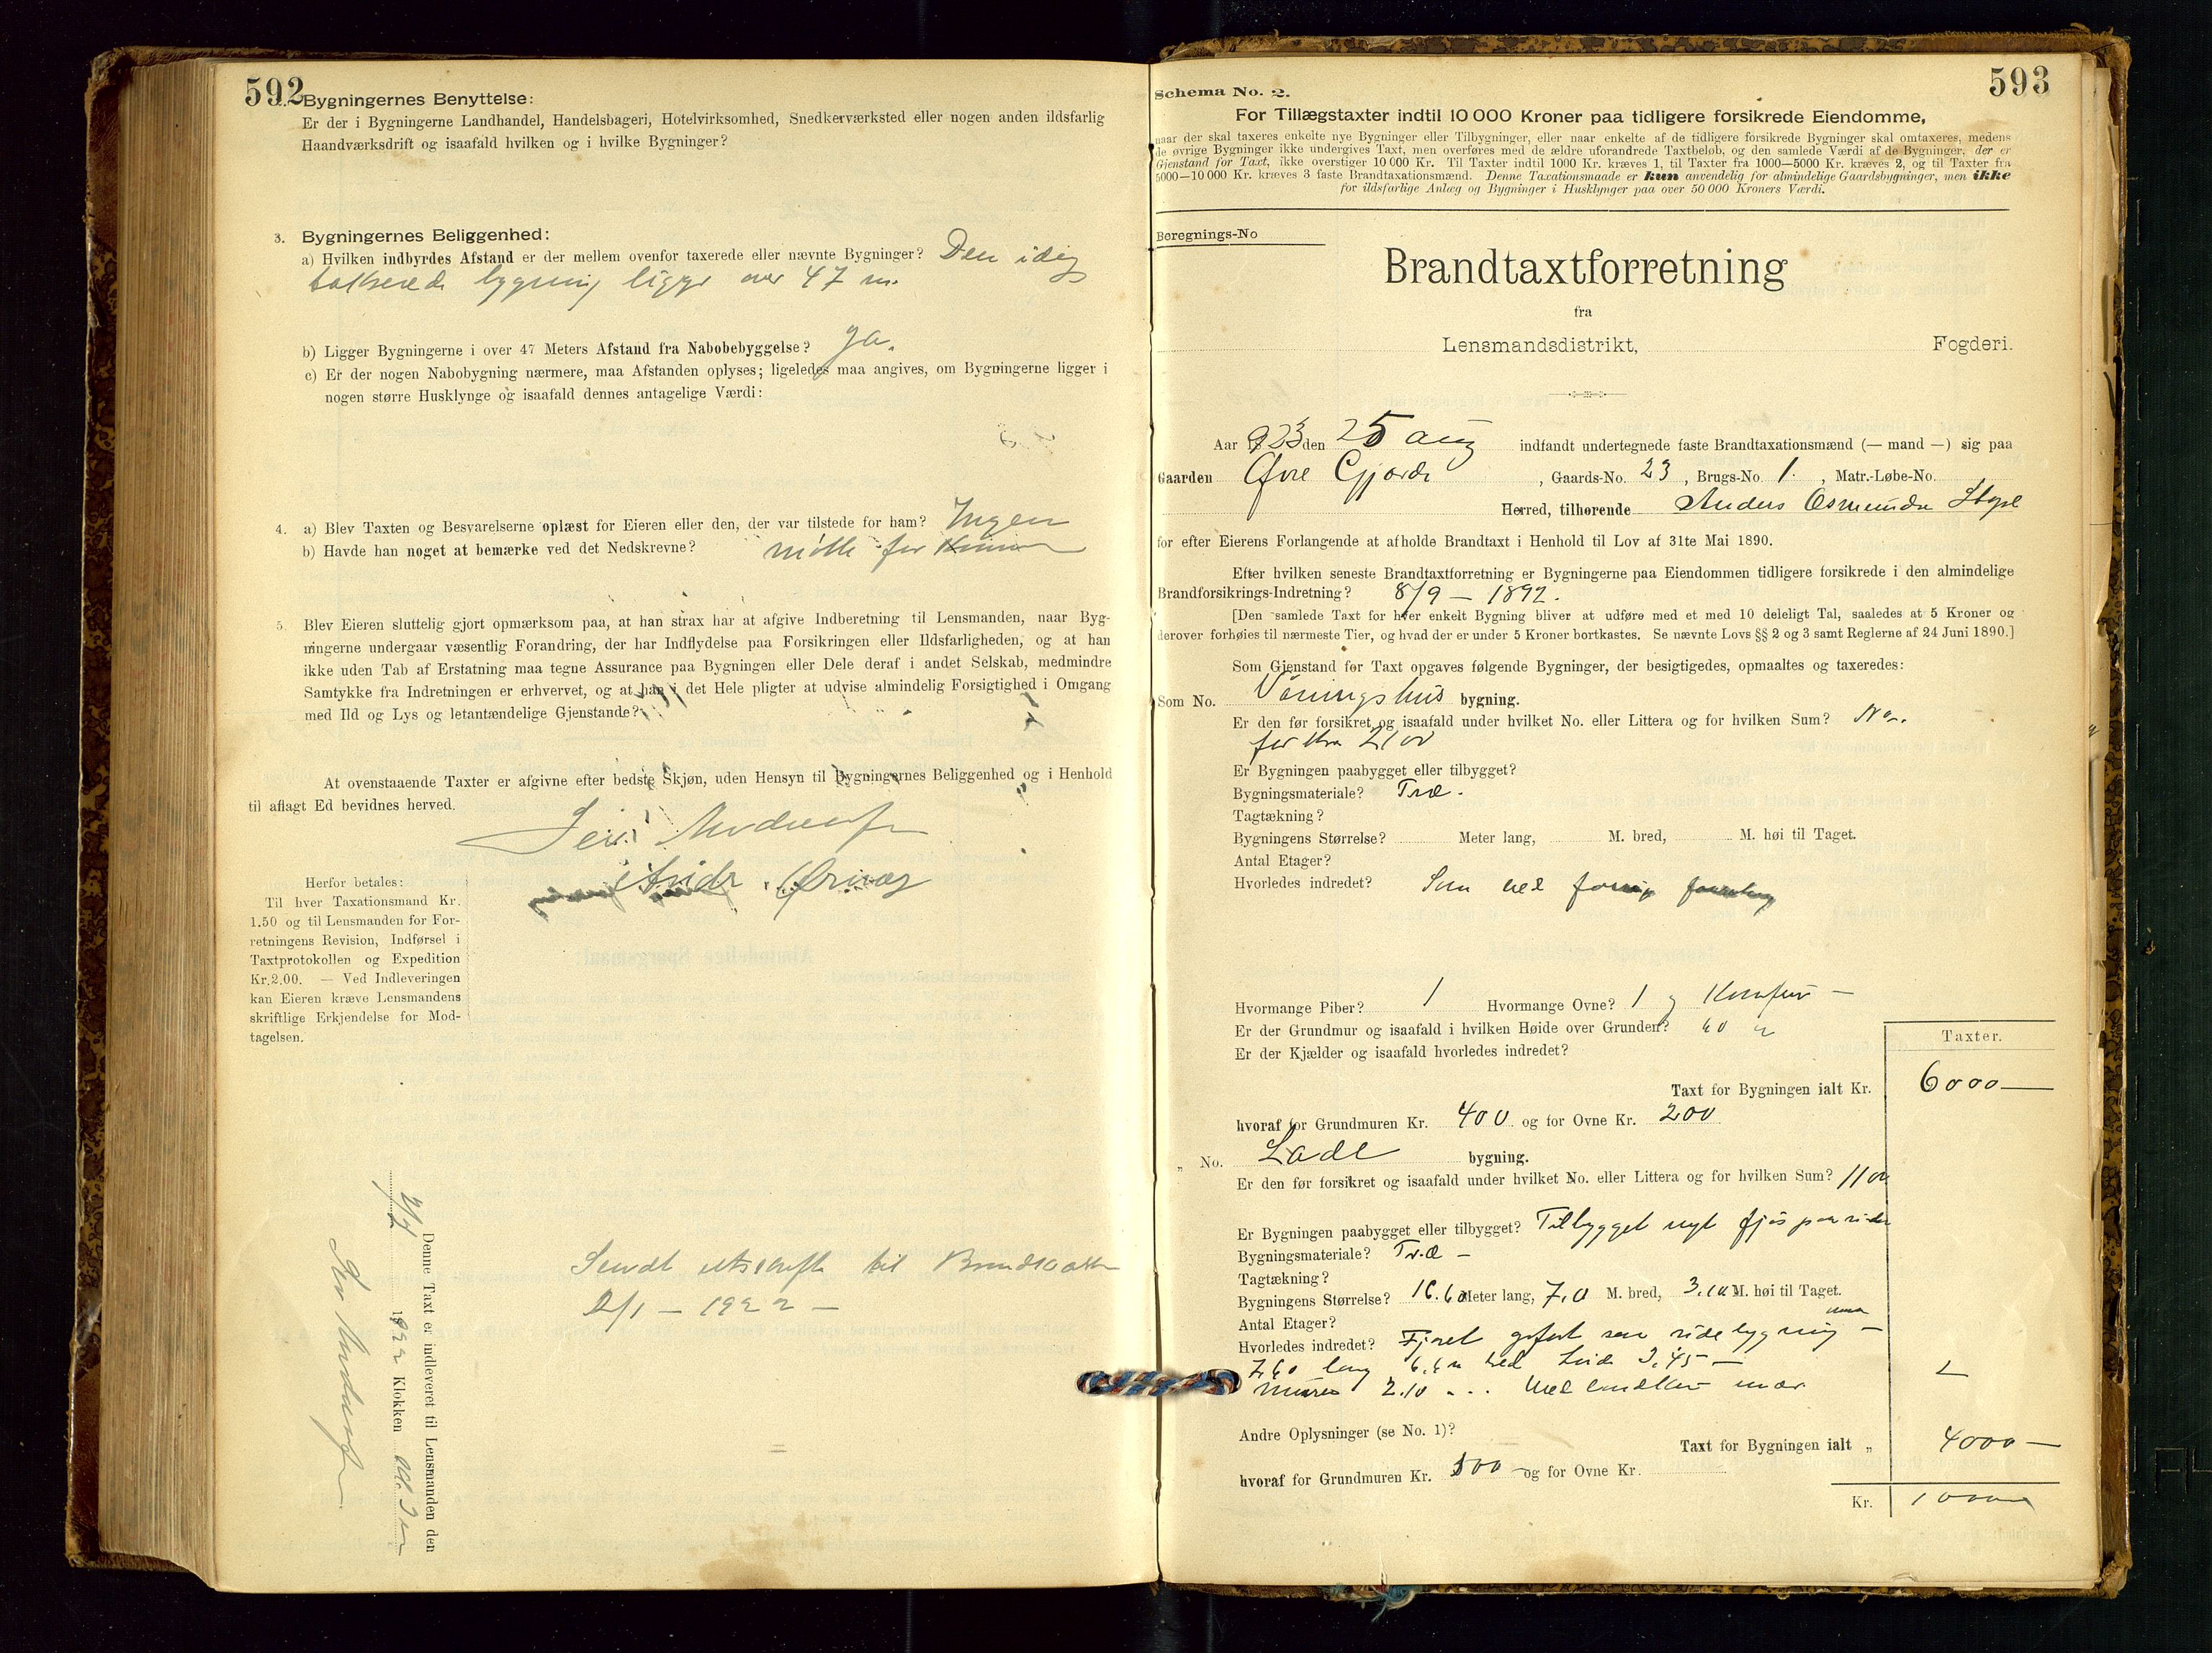 592
Bygningernes Benyttelse:
Er der i Bygningerne Landhandel, Handelsbageri, Hotelvirksomhed, Snedkerværksted eller nogen anden ildsfarlig
Haandværksdrift og isaafald hvilken og i hvilke Bygninger?
3. Bygningernes Beliggenhed:
a) Hvilken indbyrdes Afstand er der mellem ovenfor taxerede eller nævnte Bygninger? Den idag
takserede bygning ligger over 47 m.
b) Ligger Bygningerne i over 47 Meters Afstand fra Nabobebyggelse? Ja.
c) Er der nogen Nabobygning nærmere, maa Afstanden oplyses; ligeledes maa angives, om Bygningerne ligger i
nogen større Husklynge og isaafald dennes antagelige Værdi:
4. a) Blev Taxten og Besvarelserne oplæst for Eieren eller den, der var tilstede for ham? Ingen
b) Havde han noget at bemærke ved det Nedskrevne? møtte for
5. Blev Eieren sluttelig gjort opmærksom paa, at han strax har at afgive Indberetning til Lensmanden, naar Byg-
ningerne undergaar væsentlig Forandring, der har Indflydelse paa Forsikringen eller Ildsfarligheden, og at han
ikke uden Tab af Erstatning maa tegne Assurance paa Bygningen eller Dele deraf i andet Selskab, medmindre
Samtykke fra Indretningen er erhvervet, og at han i det Hele pligter at udvise almindelig Forsigtighed i Omgang
med Ild og Lys og letantændelige Gjenstande?
At ovenstaaende Taxter er afgivne efter bedste Skjøn, uden Hensyn til Bygningernes Beliggenhed og i Henhold
til aflagt Ed bevidnes herved.
Herfor betales:
Til hver Taxationsmand Kr.
1.50 og til Lensmanden for For-
retningens Revision, Indførsel i
Taxtprotokollen og Expedition
Kr. 2.00. — Ved Indleveringen
kan Eieren kræve Lensmandens
skriftlige Erkjendelse for Mod-
tagelsen.
Denne Taxt er indleveret til Lensmanden den
1922 Klokken
Sendt utskrift til
2/1 - 1922 -
593
Schema No. 2.
For Tillægstaxter indtil 10 000 Kroner paa tidligere forsikrede Eiendomme,
naar der skal taxeres enkelte nye Bygninger eller Tilbygninger, eller naar enkelte af de tidligere forsikrede Bygninger skal omtaxeres, medens
de øvrige Bygninger ikke undergives Taxt, men overføres med de ældre uforandrede Taxtbeløb, og den samlede Værdi af de Bygninger, der er
Gjenstand for Taxt, ikke overstiger 10 000 Kr. Til Taxter indtil 1000 Kr. kræves 1, til Taxter fra 1000—5000 Kr. kræves 2, og til Taxter fra
5000—10 000 Kr. kræves 3 faste Brandtaxationsmænd. Denne Taxationsmaade er kun anvendelig for almindelige Gaardsbygninger, men ikke
for ildsfarlige Anlæg og Bygninger i Husklynger paa over 50 000 Kroners Værdi.
Beregnings-No
Brandtaxtforretning
fra
Lensmandsdistrikt, Fogderi.
Aar 1923 den 25 aug indfandt undertegnede faste Brandtaxationsmænd (— mand —) sig paa
Gaarden Øvre , Gaards-No. 23, Brugs-No. 1., Matr.-Løbe-No.
Herred, tilhørende Anders
for efter Eierens Forlangende at afholde Brandtaxt i Henhold til Lov af 31te Mai 1890.
Efter hvilken seneste Brandtaxtforretning er Bygningerne paa Eiendommen tidligere forsikrede i den almindelige
Brandforsikrings-Indretning? 8/9 - 1892.
[Den samlede Taxt for hver enkelt Bygning bliver at udføre med et med 10 deleligt Tal, saaledes at 5 Kroner og
derover forhøies til nærmeste Tier, og hvad der er under 5 Kroner bortkastes. Se nævnte Lovs §§ 2 og 3 samt Reglerne af 24 Juni 1890.]
Som Gjenstand for Taxt opgaves følgende Bygninger, der besigtigedes, opmaaltes og taxeredes:
Som No. Vaaningshus bygning.
Er den før forsikret og isaafald under hvilket No. eller Littera og for hvilken Sum? No.
for Kr 2100
Er Bygningen paabygget eller tilbygget?
Bygningsmateriale? Træ.
Tagtækning?
Bygningens Størrelse? Meter lang, M. bred, M. høi til Taget.
Antal Etager?
Hvorledes indredet? Som ved forrige
Hvormange Piber? 1 Hvormange Ovne? 1 og Komfur -
Er der Grundmur og isaafald i hvilken Høide over Grunden? 60
Er der Kjælder og isaafald hvorledes indredet?
Taxter.
Taxt for Bygningen ialt Kr. 6000—
hvoraf for Grundmuren Kr. 400 og for Ovne Kr. 200
" No. Lade bygning.
Er den før forsikret og isaafald under hvilket No. eller Littera og for hvilken Sum? 1100
Er Bygningen paabygget eller tilbygget? Tilbygget nyt fjøs paa siden
Bygningsmateriale? Træ -
Tagtækning?
Bygningens Størrelse? 16.60 Meter lang, 7.0 M. bred, 3.10 M. høi til Taget.
Antal Etager?
Hvorledes indredet? Fjøset som sidebygning -
7.60 lang 3,45 -
2.10
Andre Oplysninger (se No. 1)?
Taxt for Bygningen ialt „ 4000 —
hvoraf for Grundmuren Kr. 500 og for Ovne Kr.
Kr. 10000